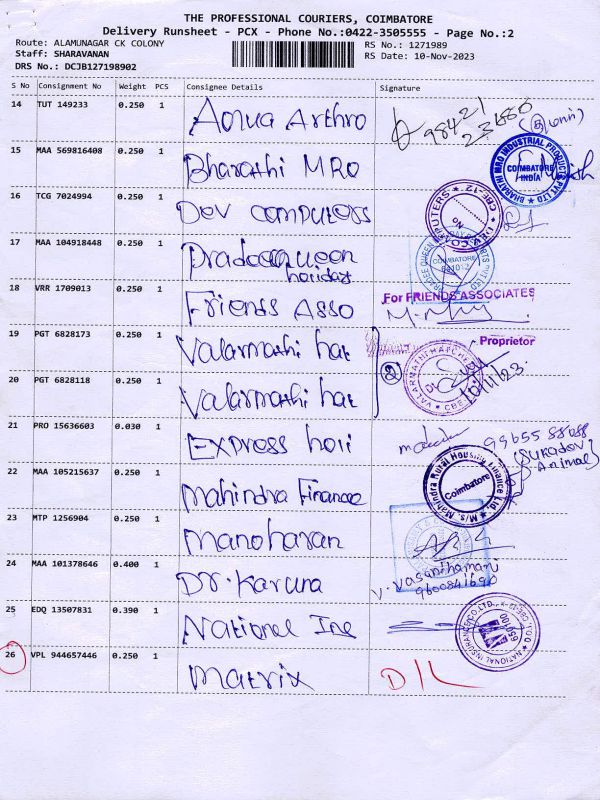 THE PROFESSIONAL COURIERS, COIMBATORE
Delivery Runsheet - PCX - Phone No.:0422-3505555 - Page No.:2
Route: ALAMUNAGAR CK COLONY
RS No.: 1271989
Staff: SHARAVANAN
RS Date: 10-Nov-2023
DRS No.: DCJB127198902
S No Consignment No Weight PCS Consignee Details Signature
14 TUT 149233 0.250 1 Aqua Arthro
98421
15 MAA 569816408 0.250 1 Bharathi MRO
BHARATHI MRO INDUSTRIAL PRODUCTS PVT LTD
COIMBATORE
INDIA
16 TCG 7024994 0.250 1 Dev computers
DEV COMPUTERS CBE-12
17 MAA 104918448 0.250 1 Pradeequeen
holiday
COIMBATORE
641012
18 VRR 1709013 0.250 1 Friends Asso
For FRIENDS ASSOCIATES
19 PGT 6828173 0.250 1 Valarmathi hat
Proprietor
20 PGT 6828118 0.250 1 Valarmathi hat
2
10/11/23
21 PRO 15636603 0.030 1 Express holi
99655 88088
Animal)
22 MAA 105215637 0.250 1 Mahindra Finance
M/s. Mahindra Rural Housing Finance Ltd.
Coimbatore
23 MTP 1256904 0.250 1 Manoharan
24 MAA 101378646 0.400 1 Dr. Karuna
V. Vasanthamani
9600841690
25 EDQ 13507831 0.390 1 National Ins
NATIONAL INSURANCE CO.LTD.
26 VPL 944657446 0.250 1 Matrix
D/L